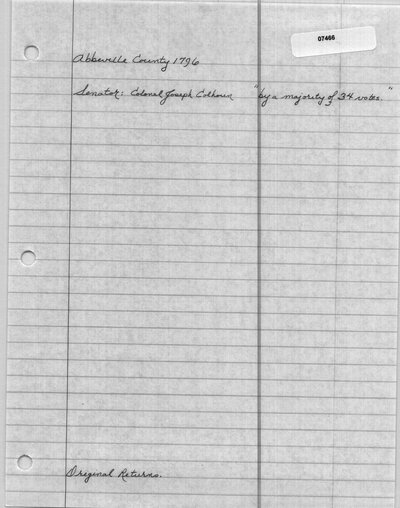 07466
Abbeville County 1796
Senator: Colonel Joseph Calhoun "by a majority of 34 votes."
Original Returns.